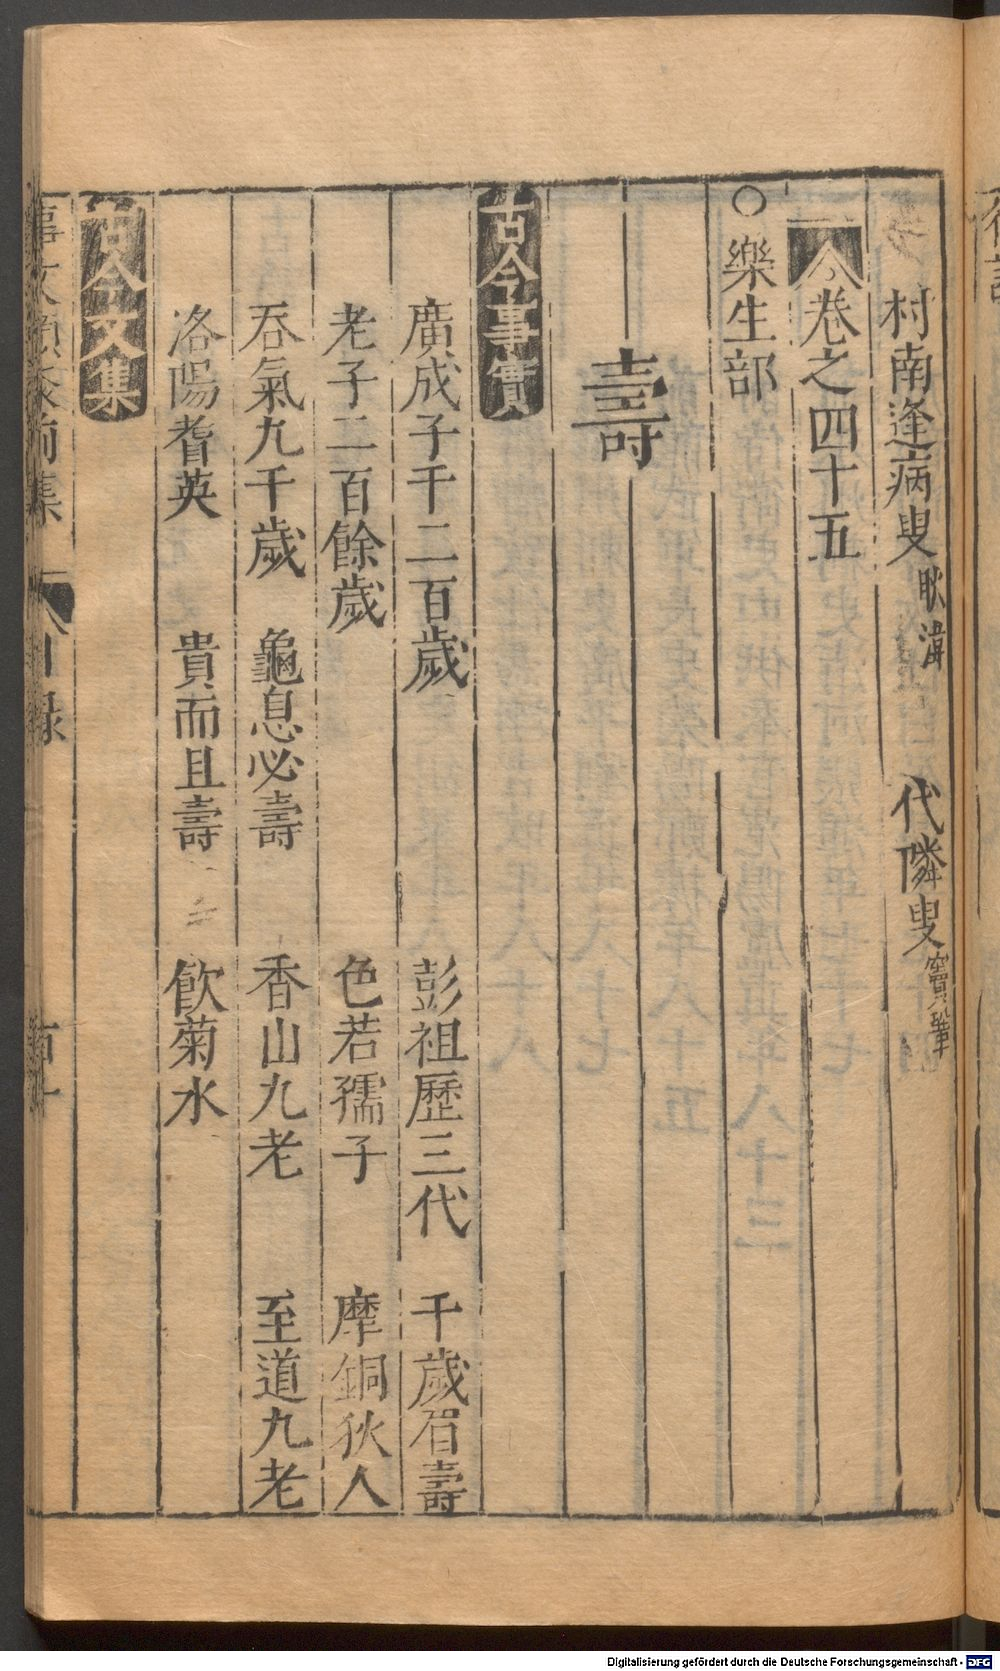 村南逢病叟 耿湋 代隣叟 竇鞏
卷之四十五
○樂生部
壽
古今事實
廣成子千二百歲 彭祖歷三代 千歲眉壽
老子二百餘歲 色若孺子 摩銅狄人
吞氣九千歲 龜息必壽 香山九老 至道九老
洛陽耆英 貴而且壽 飲菊水
古今文集
事文類聚前集 目錄
Digitalisierung gefördert durch die Deutsche Forschungsgemeinschaft - DFG